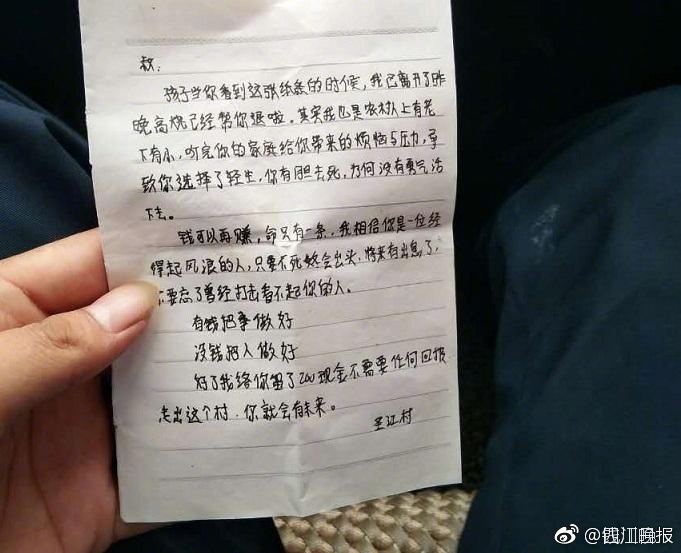 叔:
孩子当你看到这张纸条的时候,我已离开了昨
晚高烧已经帮你退啦。其实我也是农村人上有老
下有小,听完你的家庭给你带来的烦恼与压力,导
致你选择了轻生,你有胆去死,为何没有勇气活
下去。
钱可以再赚,命只有一条,我相信你是一位经
得起风浪的人,只要不死终会出头,将来有出息了,
不要忘了曾经打击看不起你的人。
有钱把事做好
没钱把人做好
对了我给你留了200现金不需要任何回报
走出这个村,你就会有未来。
江村
@钱江晚报